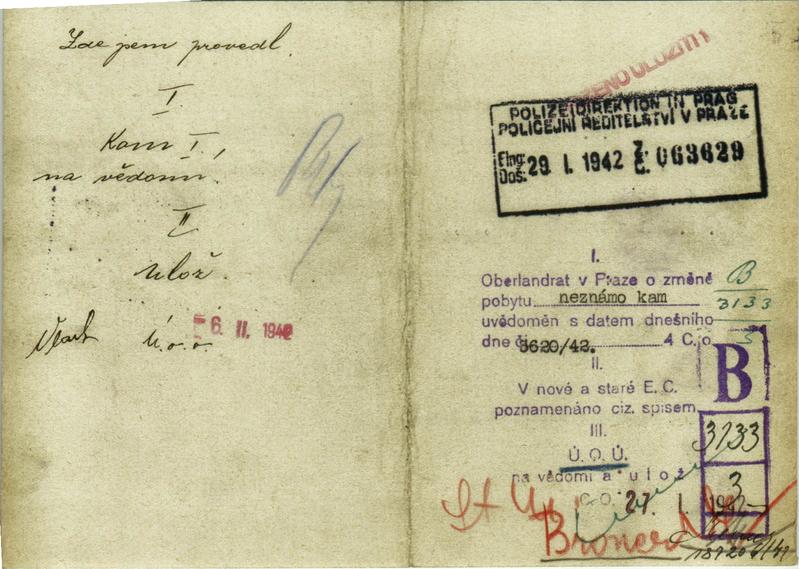 Zde jsem provedl.
I.
Kom I,
na vědomí.
II
Ulož.
6. II. 1942
Ú.o.o.
ULOŽITI!
POLIZEIDIREKTION IN PRAG
POLICEJNÍ ŘEDITELSTVÍ V PRAZE
Eing: Doš: 29. I. 1942 Z. Č. 063629
I.
Oberlandrat v Praze o změně
pobytu neznámo kam
uvědoměn s datem dnešního
dne č. 5620/42. 4 C. o.
II.
V nové a staré E. C.
poznamenáno ciz. spisem.
III.
Ú. O. Ú.
na vědomí a ulož
C. O. 27. I. 194
B
3133
5
B
3133
3